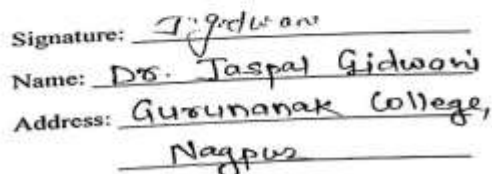 Signature: J.gidwani
Name: Dr. Jaspal Gidwani
Address: Gurunanak College,
Nagpur